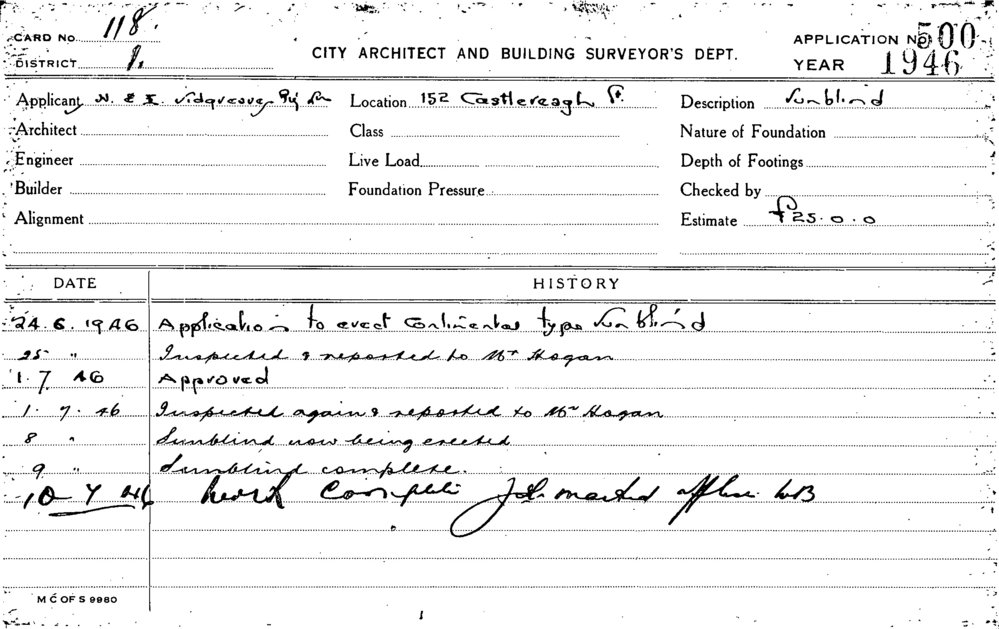 CARD NO. 118.
DISTRICT 1.
CITY ARCHITECT AND BUILDING SURVEYOR'S DEPT.
APPLICATION NO 500
YEAR 1946
Applicant N. & I. Pty Ltd Location 152 Castlereagh St. Description Sunblind
Architect Class Nature of Foundation
Engineer Live Load Depth of Footings
Builder Foundation Pressure Checked by
Alignment Estimate £25.0.0
DATE HISTORY
24.6.1946 Application to erect Continental type Sunblind
25 " Inspected & reported to Mr Hogan
1.7.46 Approved
1.7.46 Inspected again & reported to Mr Hogan
8 " Sunblind now being erected
9 " Sunblind complete.
10 7 46 Work Complete Job marked off
M C OF S 9980